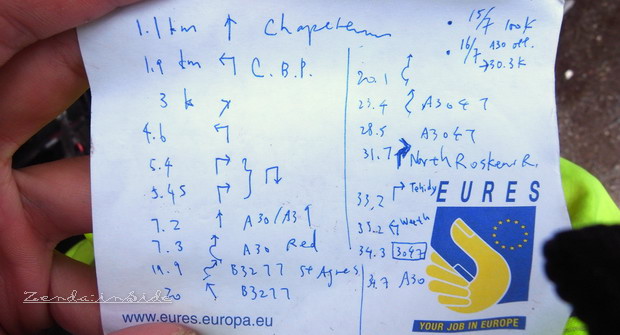 1.1 km ↑ Chapeltown
1.9 km ↰ C.B.P.
3 k ↗
4.6 ↰
5.4 ↱
5.45 ↱
7.2 ↑ A30/A39
7.3 A30 Red
19.9 B3277 St Agnes
20 ↖ B3277
• 15/7 100k
• 16/7 A30 off.
→30.3k
20.1
23.4 A3047
28.5 A3047
31.7 North Roskear R.
33,2 ↱ Tehidy
33.2
34.3 3047
34.7 A30
EURES
YOUR JOB IN EUROPE
www.eures.europa.eu
Zenda:inside